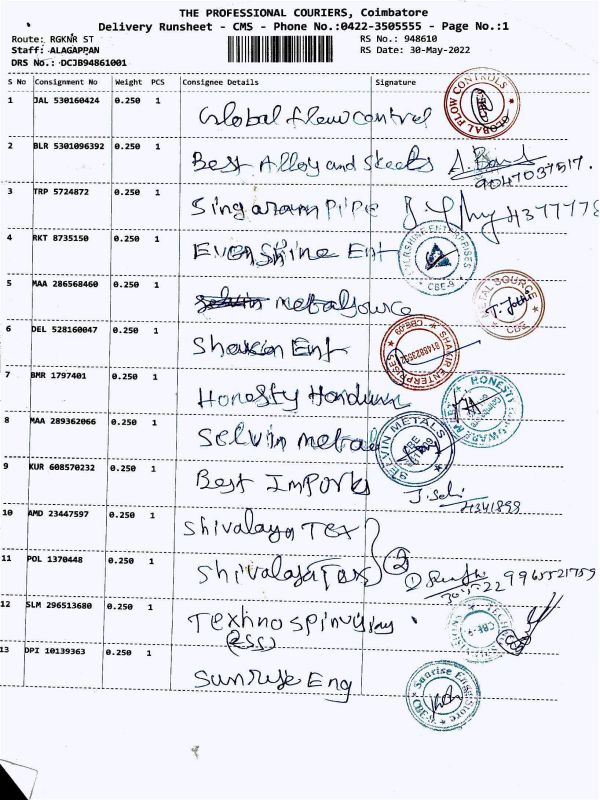 THE PROFESSIONAL COURIERS, Coimbatore
Delivery Runsheet - CMS - Phone No.:0422-3505555 - Page No.:1
Route: RGKNR ST RS No.: 948610
Staff: ALAGAPPAN RS Date: 30-May-2022
DRS No.: DCJB94861001
S No Consignment No Weight PCS Consignee Details Signature
1 JAL 530160424 0.250 1 Global flow control
GLOBAL FLOW CONTROLS
2 BLR 5301096392 0.250 1 Best Alloy and Steels
9047037517.
3 TRP 5724872 0.250 1 Singaram Pipe
4377778
4 RKT 8735150 0.250 1 Evershine Ent
EVERSHINE ENTERPRISES CBE-9
5 MAA 286568460 0.250 1 selvin metalsource
METAL SOURCE CBE T. Jothi
6 DEL 528160047 0.250 1 Ent
SHAKIR ENTERPRISES CBE-09
7 BMR 1797401 0.250 1 Honesty
HONESTY
8 MAA 289362066 0.250 1 Selvin metals
SELVIN METALS CBE
9 KUR 608570232 0.250 1 Best Imports
4341898
10 AMD 23447597 0.250 1 Shivalaya Tex
11 POL 1370448 0.250 1 Shivalaya Tex 2
9965521759
12 SLM 296513680 0.250 1 Texhno spinning
CBE-9
13 DPI 10139363 0.250 1 Sunrise Eng
Sunrise Engg Store CBE-9